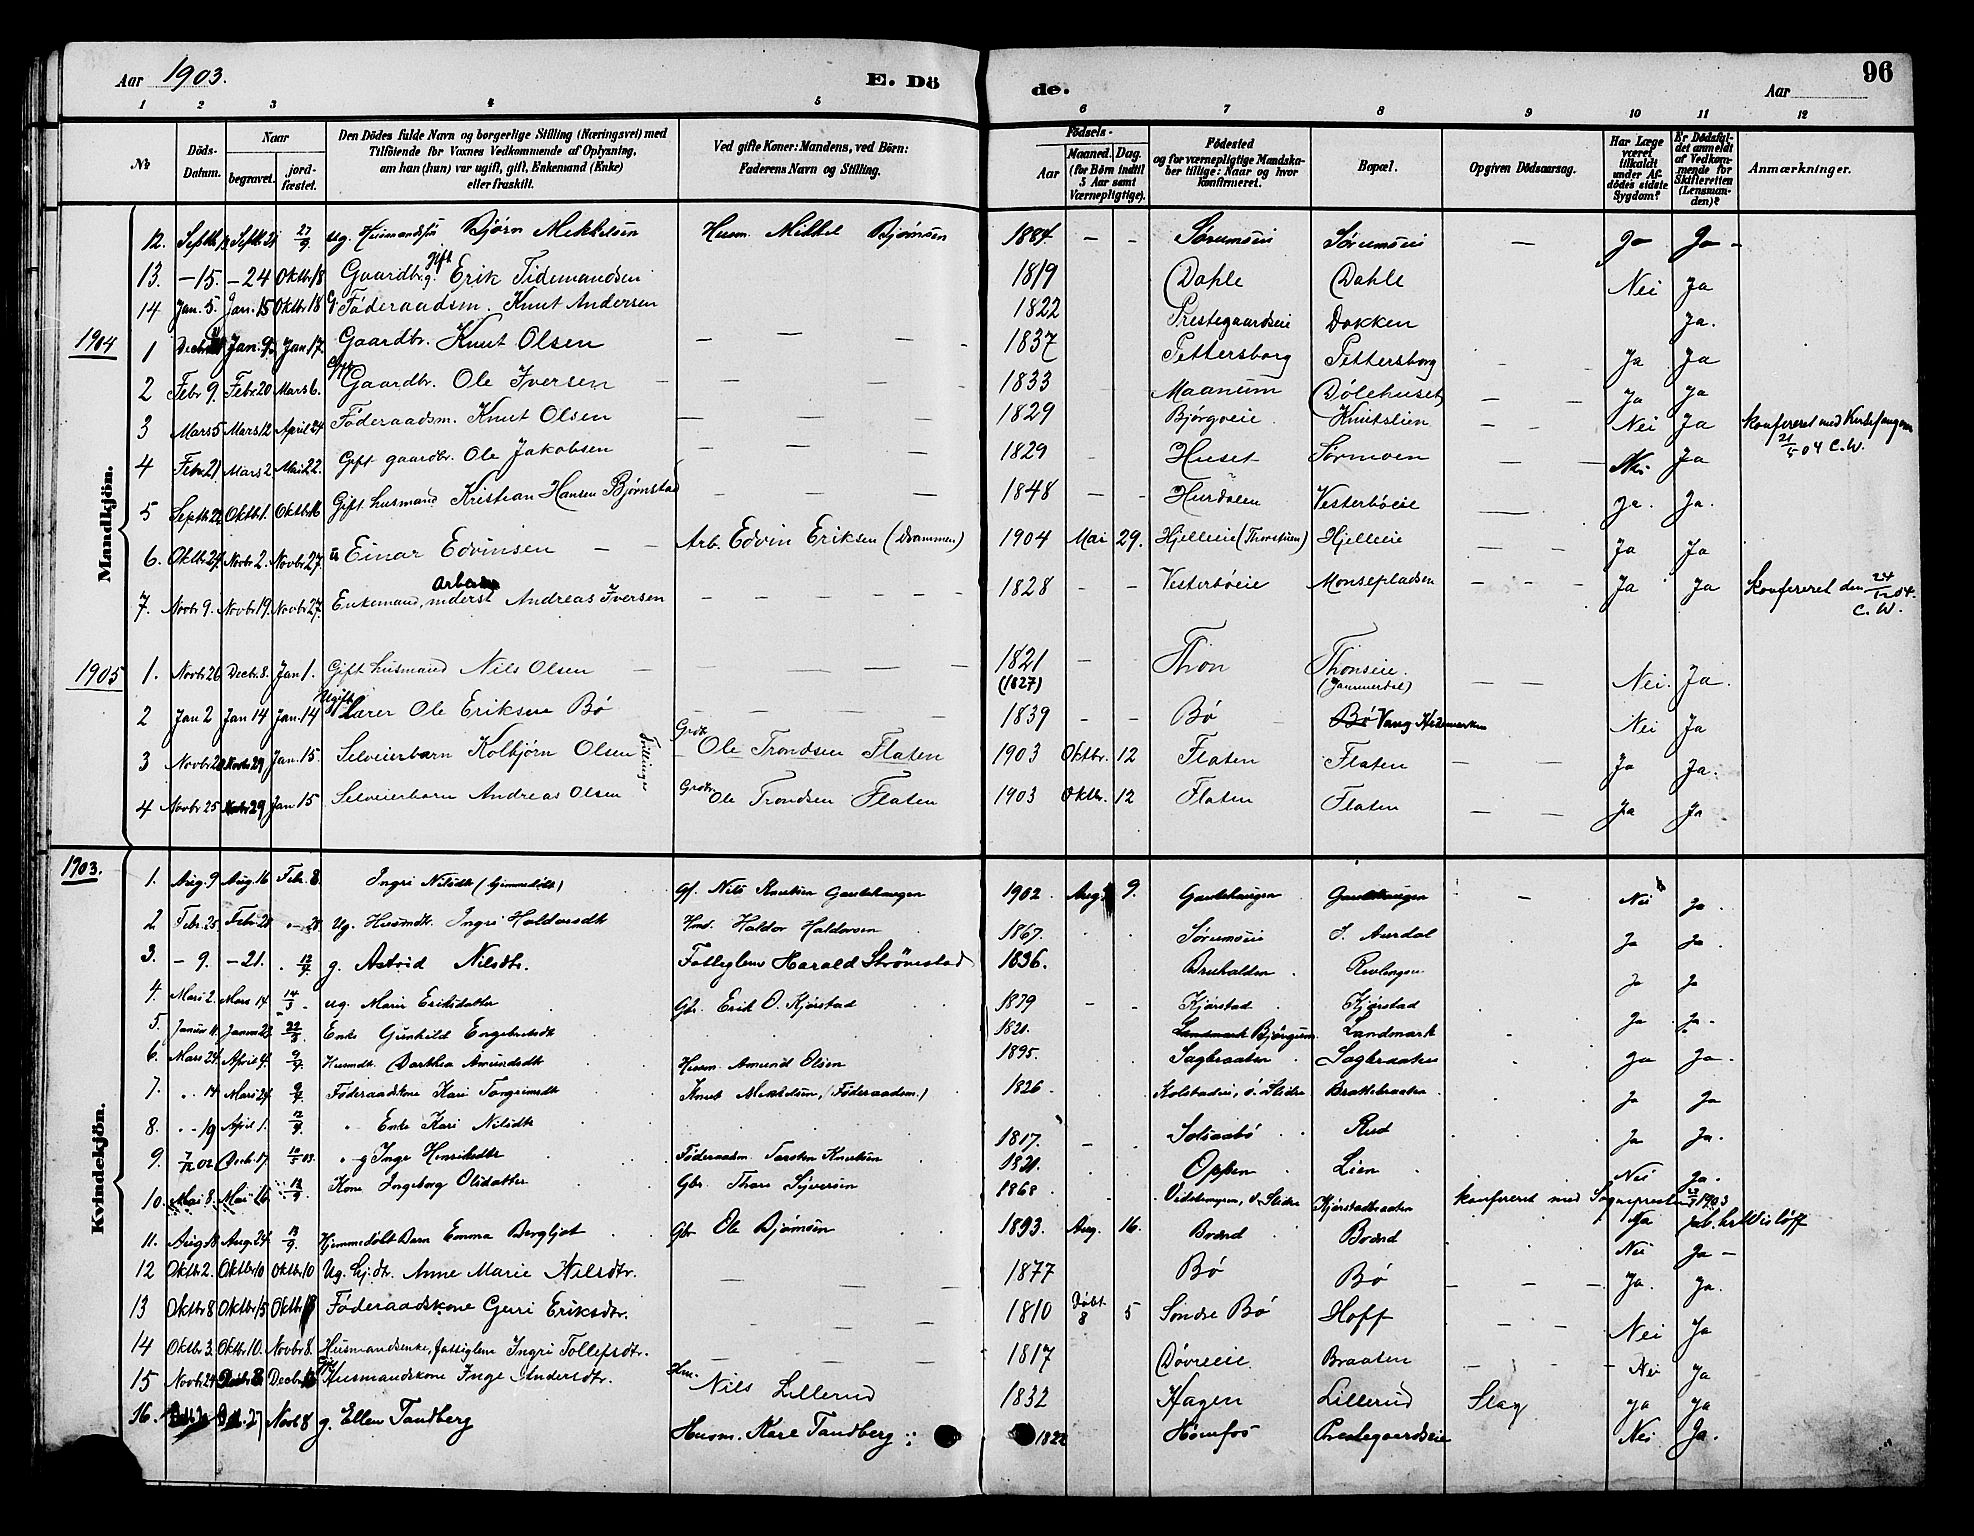 Aar 1903.
E. Dö
de.
Aar
96
1 2 3 4 5 6 7 8 9 10 11 12
No
Döds-Datum.
Naar
begravet.
jord-fæstet.
Den Dödes fulde Navn og borgerlige Stilling (Næringsvei) med
Tilföiende for Voxnes Vedkommende af Oplysning,
om han (hun) var ugift, gift, Enkemand (Enke)
eller fraskilt.
Ved gifte Koner: Mandens, ved Börn:
Faderens Navn og Stilling.
Födsels-
Aar
Maaned. Dag.
(for Börn indtil
5 Aar samt
Værnepligtige).
Födested
og for værnepligtige Mandska-
ber tillige: Naar og hvor
konfirmeret.
Bopæl.
Opgiven Dödsaarsag.
Har Læge
været
tilkaldt
under Af-
dödes sidste
Sygdom?
Er Dödsfal-
det anmeldt
af Vedkom-
mende for
Skifteretten
(Lensman-
den)?
Anmærkninger.
Mandkjön.
12. Septb. Septb. 21 27/9 ug. Husmandssøn Bjørn Mikkelsen Husm. Mikkel Bjørnsen 1884 — — Sørumseie Sørumseie — Ja Ja —
13. — 15. — 24 Oktbr 18 Gaardbr. gift Erik Tidemandsen 1819 Dahle Dahle Nei Ja
14 Jan. 5. Jan. 15 Oktbr 18 G. Føderaadsm. Knut Andersen 1822 Prestegaardseie Dokken Ja.
1904
1 Decbr. Jan. 9. Jan 17. Gaardbr. Knut Olsen — — 1837 Pettersborg Pettersborg — — Ja Ja
2 Febr 9. Febr 20 Mars 6. Gift Gaardbr. Ole Iversen — — — 1833 Maanum Dølehuset — — Ja Ja
3 Mars 5 Mars 12 April 24 Føderaadsm. Knut Olsen — — — 1829 Bjørgoeie Knutslien Nei Ja konfereret med 21/5 04 C.W.
4 Febr 21 Mars 2 Mai 22. Gift gaardbr. Ole Jakobsen — — 1829 — Huset Sørmoen — — Nei Ja
5 Septb 22 Oktb 1. Oktb 16 Gift husmand Kristian Hansen Bjørnstad — — — 1848 — — Hurdalen Vesterbøeie — Ja. Ja.
6. Oktbr 24 Novbr 2. Novbr 27. u Einar Edvinsen — — Arb. Edvin Eriksen (Drammen) 1904 Mai 29. Hjelleeie (Thorstuen) Hjelleeie — — Ja Ja
7. Novbr 9. Novbr 19. Novbr 27. Enkemand, inderst Arbeider Andreas Iversen — — — — — — 1828 — — Vesterbøeie Monsepladsen — — — Ja Ja konfereret den 24/12 04. C.W.
1905
1. Novbr 26 Decbr. 8. Jan 1. Gift husmand Nils Olsen — — — — — 1821 (1827) — Thon Thonseie. (Jammerdal) — — Nei. Ja.
2 Jan 2 Jan 14 Jan. 14 Ugift Lærer Ole Eriksen Bø — — — — 1839 — — Bø Bø Vang Hedemarken Nei Ja
3 Novbr 20 Novbr 29 Jan. 15. Selveierbarn Kolbjørn Olsen Tvillinger Grdbr. Ole Trondsen Flaten 1903 Oktbr. 12 Flaten Flaten — — Ja Ja.
4 Novbr 25 Novbr 29 Jan 15 Selveierbarn Andreas Olsen Grdbr. Ole Trondsen Flaten 1903 Oktbr. 12 Flaten Flaten — — Ja Ja
Kvindekjön.
1903.
1. Aug. 9 Aug. 16 Febr. 8. Ingri Nilsdtr (hjemmedøbt) Gf. Nils Knutsen Gautehaugen 1902 Aug. 9. Gautehaugen Gautehaugen — Nei Ja.
2 Febr. 25. Febr 28 — 28 Ug. Husmdtr. Ingri Haldorsdtr Hmd. Haldor Haldorsen 1867. Sørumseie S. Aurdal Ja Ja.
3. — 9. — 21. 12/4 g. Astrid Nilsdtr. Fattiglem Harald Strømstad 1836. Bruhalden Revlingen Ja Ja
4. Mars 2. Mars 14 14/3 ug. Marie Eriksdatter Gbr. Erik O. Kjørstad 1879 — — Kjørstad Kjørstad Ja Ja —
5. Januar 11. Januar 22 22/3 Enke Gunhild Engebretsdtr 1821. Landmark Bjørgum. Landmark
6. Mars 24. April 4. 9/4 Husmdtr. Dorthea Amundsdtr Husm. Amund Olsen 1895. Sagbraaten Sagbraaten Ja Ja —
7. " 14 Mars 24 9/4 Føderaadskone Kari Torgrimsdtr Knut Mikkelsen, (Føderaadsm.) 1826 Kolstadeie, ø. Slidre Brattebraaten Ja Ja
8. " 19 April 1. 12/4 " Enke Kari Nilsdtr 1817. — Rud Ja Ja.
9. 7/12 02 Decb. 17 10/5 03. " g Inge Henriksdtr Føderaadm. Torsten Knutsen 1821. Oppen Lien Nei Ja.
10. Mai 8. Mai 16. Kone Ingeborg Olsdatter Gbr. Thore Syversen 1868 ø. Slidre Kjørstadbraaten konfereret med Sogneprest 1903 Wisløff
11. Aug. 18 Aug. 24 13/9. Hjemmedøbt Barn Emma Bergljot Gbr Ole Bjørnsen 1893. Aug. 16. Brænd Brænd Nei Ja —
12 Oktbr 2. Oktbr 10 Oktbr 10 Ug. hj. dtr. Anne Marie Nilsdtr. — — — 1877 Bø Bø — — — Ja. Ja.
13 Oktbr 8 Oktbr 15 Oktbr 18 Føderaadskone Guri Eriksdtr. — — 1810 Døbt 8 5 Søndre Bø Hoff Nei Ja
14 Oktbr. 3. Oktbr. 10. Novbr 8. Husmandsenke, fattiglem Ingri Tollefsdtr. — — — 1817 Døvreeie Braaten — — — Nei Ja
15 Novbr 24 Decbr 8 Decbr 13 Gift Husmandskone Inge Andersdtr. Hm. Nils Lillerud 1832 Hagen Lillerud Slag Ja Ja
16. 27 Novb 8 g. Ellen Tandberg Husm. Karl Tandberg 1822 Hønefos Prestegaardseie Nei Ja.